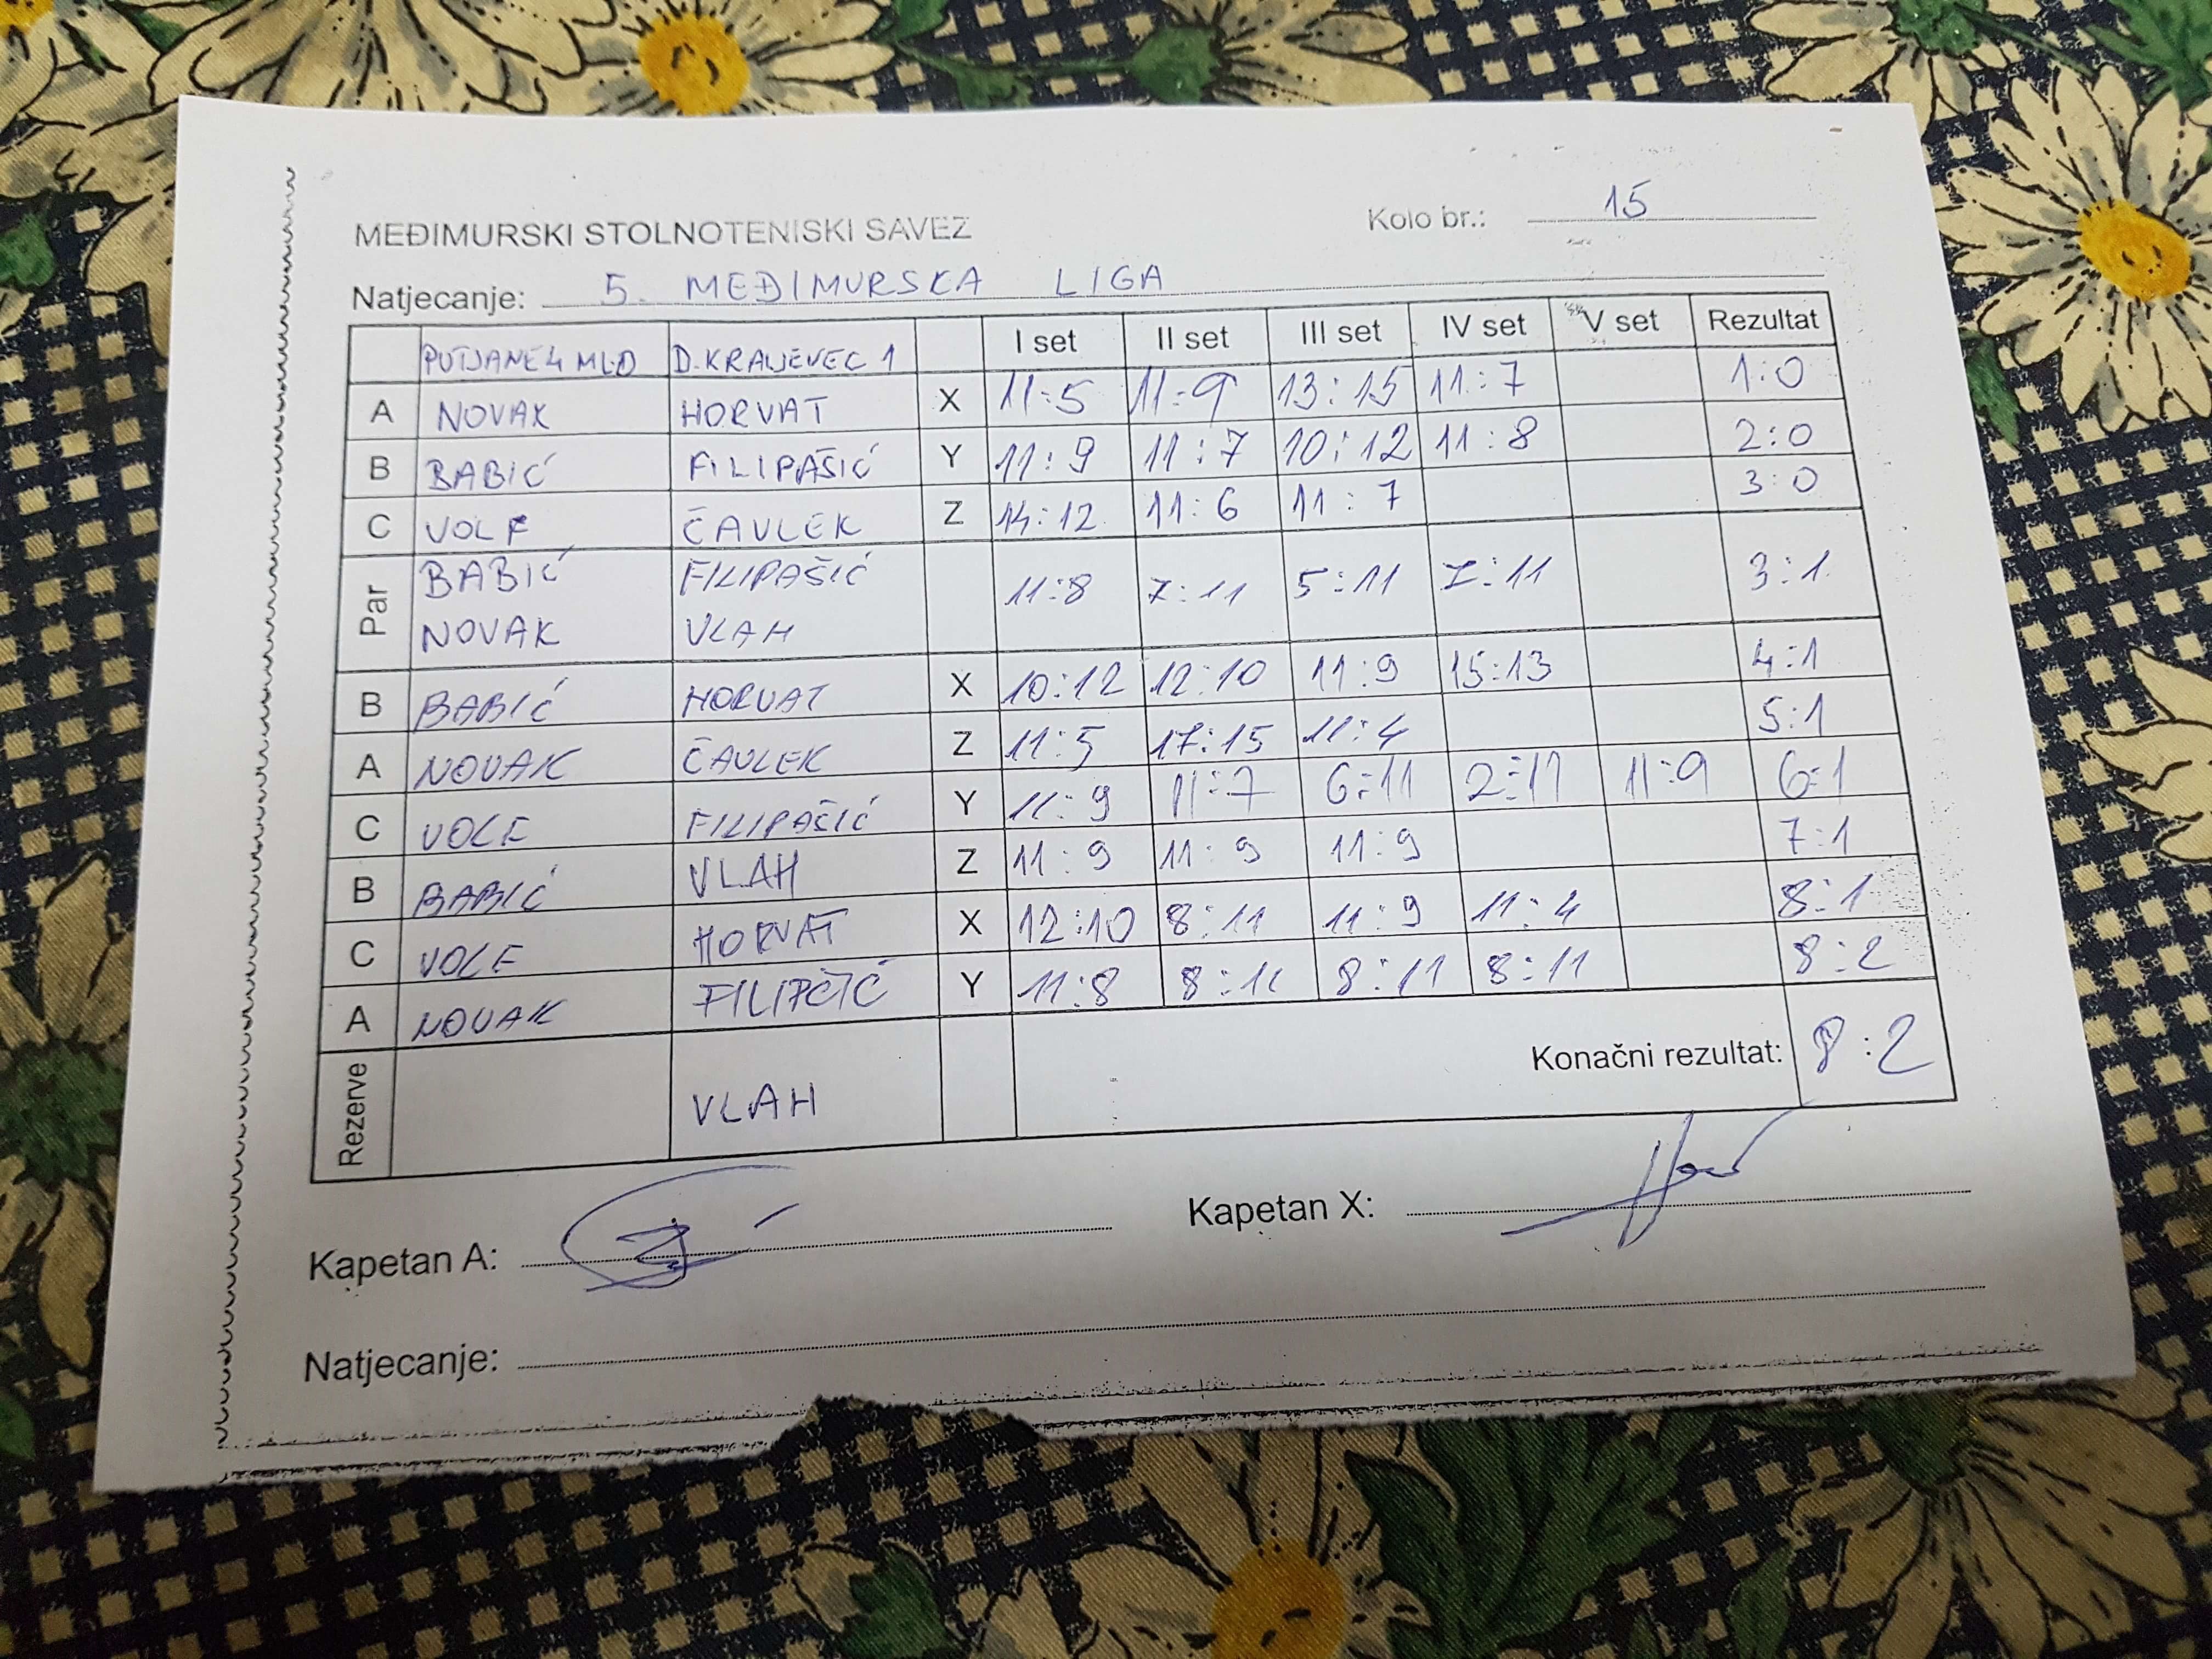 MEĐIMURSKI STOLNOTENISKI SAVEZ Kolo br.: 15
Natjecanje: 5. MEĐIMURSKA LIGA
PUTJANE 4 MLD D.KRALJEVEC 1 I set II set III set IV set V set Rezultat
A NOVAK HORVAT X 11:5 11:9 13:15 11:7 1:0
B BABIĆ FILIPAŠIĆ Y 11:9 11:7 10:12 11:8 2:0
C VOLF ČAVLEK Z 14:12 11:6 11:7 3:0
Par BABIĆ FILIPAŠIĆ 11:8 7:11 5:11 7:11 3:1
NOVAK VLAH
B BABIĆ HORVAT X 10:12 12:10 11:9 15:13 4:1
A NOVAK ČAVLEK Z 11:5 17:15 11:4 5:1
C VOLF FILIPAŠIĆ Y 11:9 11:7 6:11 2:11 11:9 6:1
B BABIĆ VLAH Z 11:9 11:9 11:9 7:1
C VOLF HORVAT X 12:10 8:11 11:9 11:4 8:1
A NOVAK FILIPČIĆ Y 11:8 8:11 8:11 8:11 8:2
Rezerve VLAH Konačni rezultat: 8:2
Kapetan A: Kapetan X:
Natjecanje: